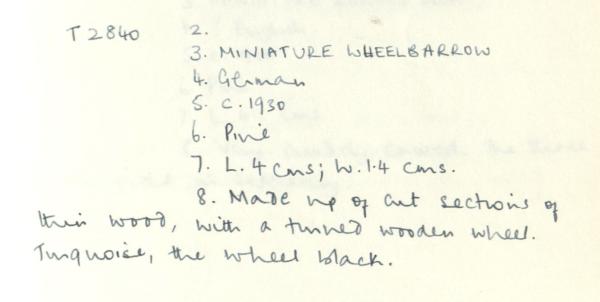 T 2840 2.
3. MINIATURE WHEELBARROW
4. German
5. c. 1930
6. Pine
7. L. 4 cms; W. 1.4 cms.
8. Made up of cut sections of
thin wood, with a turned wooden wheel.
Turquoise, the wheel black.